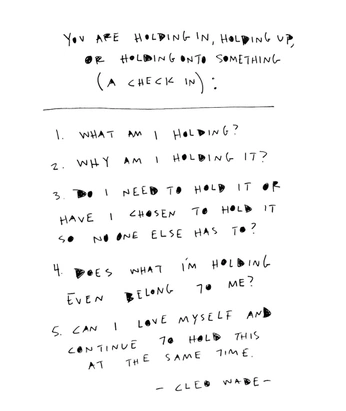 YOU ARE HOLDING IN, HOLDING UP,
OR HOLDING ONTO SOMETHING
(A CHECK IN):
1. WHAT AM I HOLDING?
2. WHY AM I HOLDING IT?
3. DO I NEED TO HOLD IT OR
HAVE I CHOSEN TO HOLD IT
SO NO ONE ELSE HAS TO?
4. DOES WHAT I'M HOLDING
EVEN BELONG TO ME?
5. CAN I LOVE MYSELF AND
CONTINUE TO HOLD THIS
AT THE SAME TIME.
- CLEO WADE -